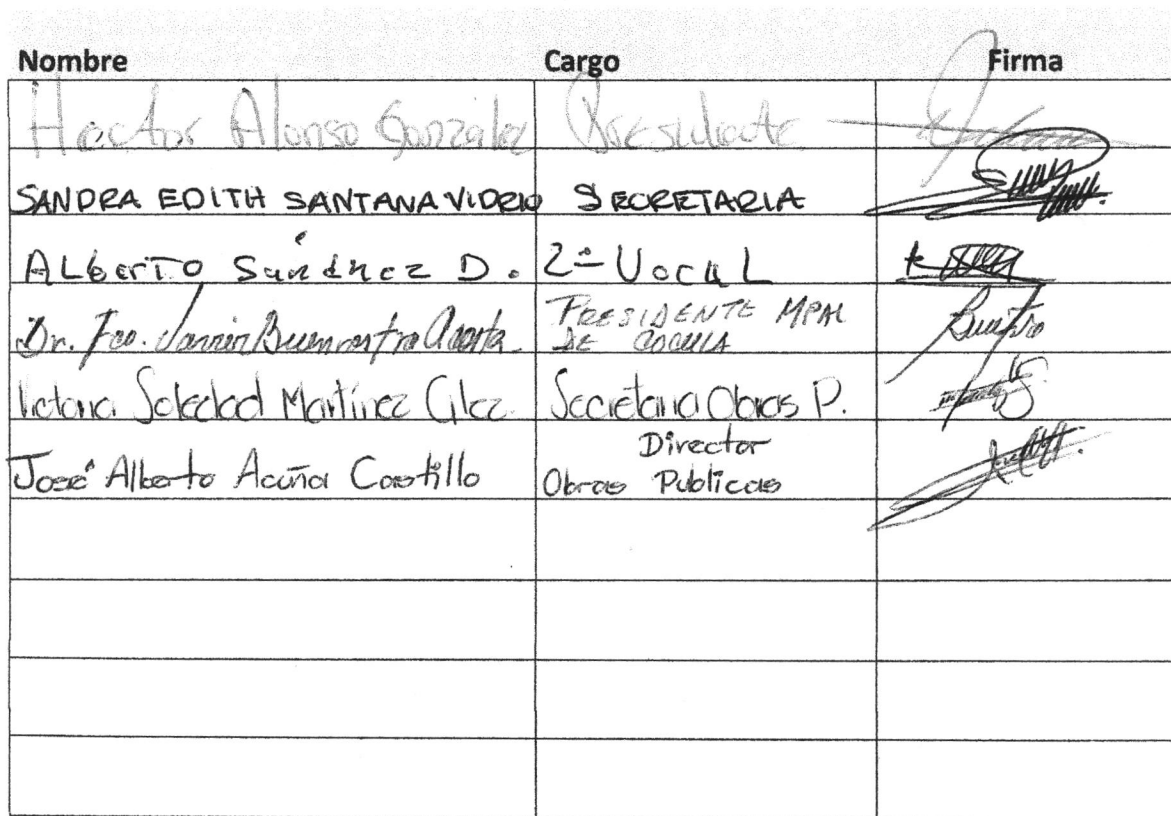 Nombre Cargo Firma
Hector Alonso Gonzalez Presidente
SANDRA EDITH SANTANA VIDRIO SECRETARIA
ALberTO Sánchez D. 2º VocaL
Dr. Fco. Javier Buenrostro Acosta PRESIDENTE MPAL
DE COCULA
Victoria Soledad Martínez Secretaria Obras P.
José Alberto Acuña Castillo Director
Obras Publicas